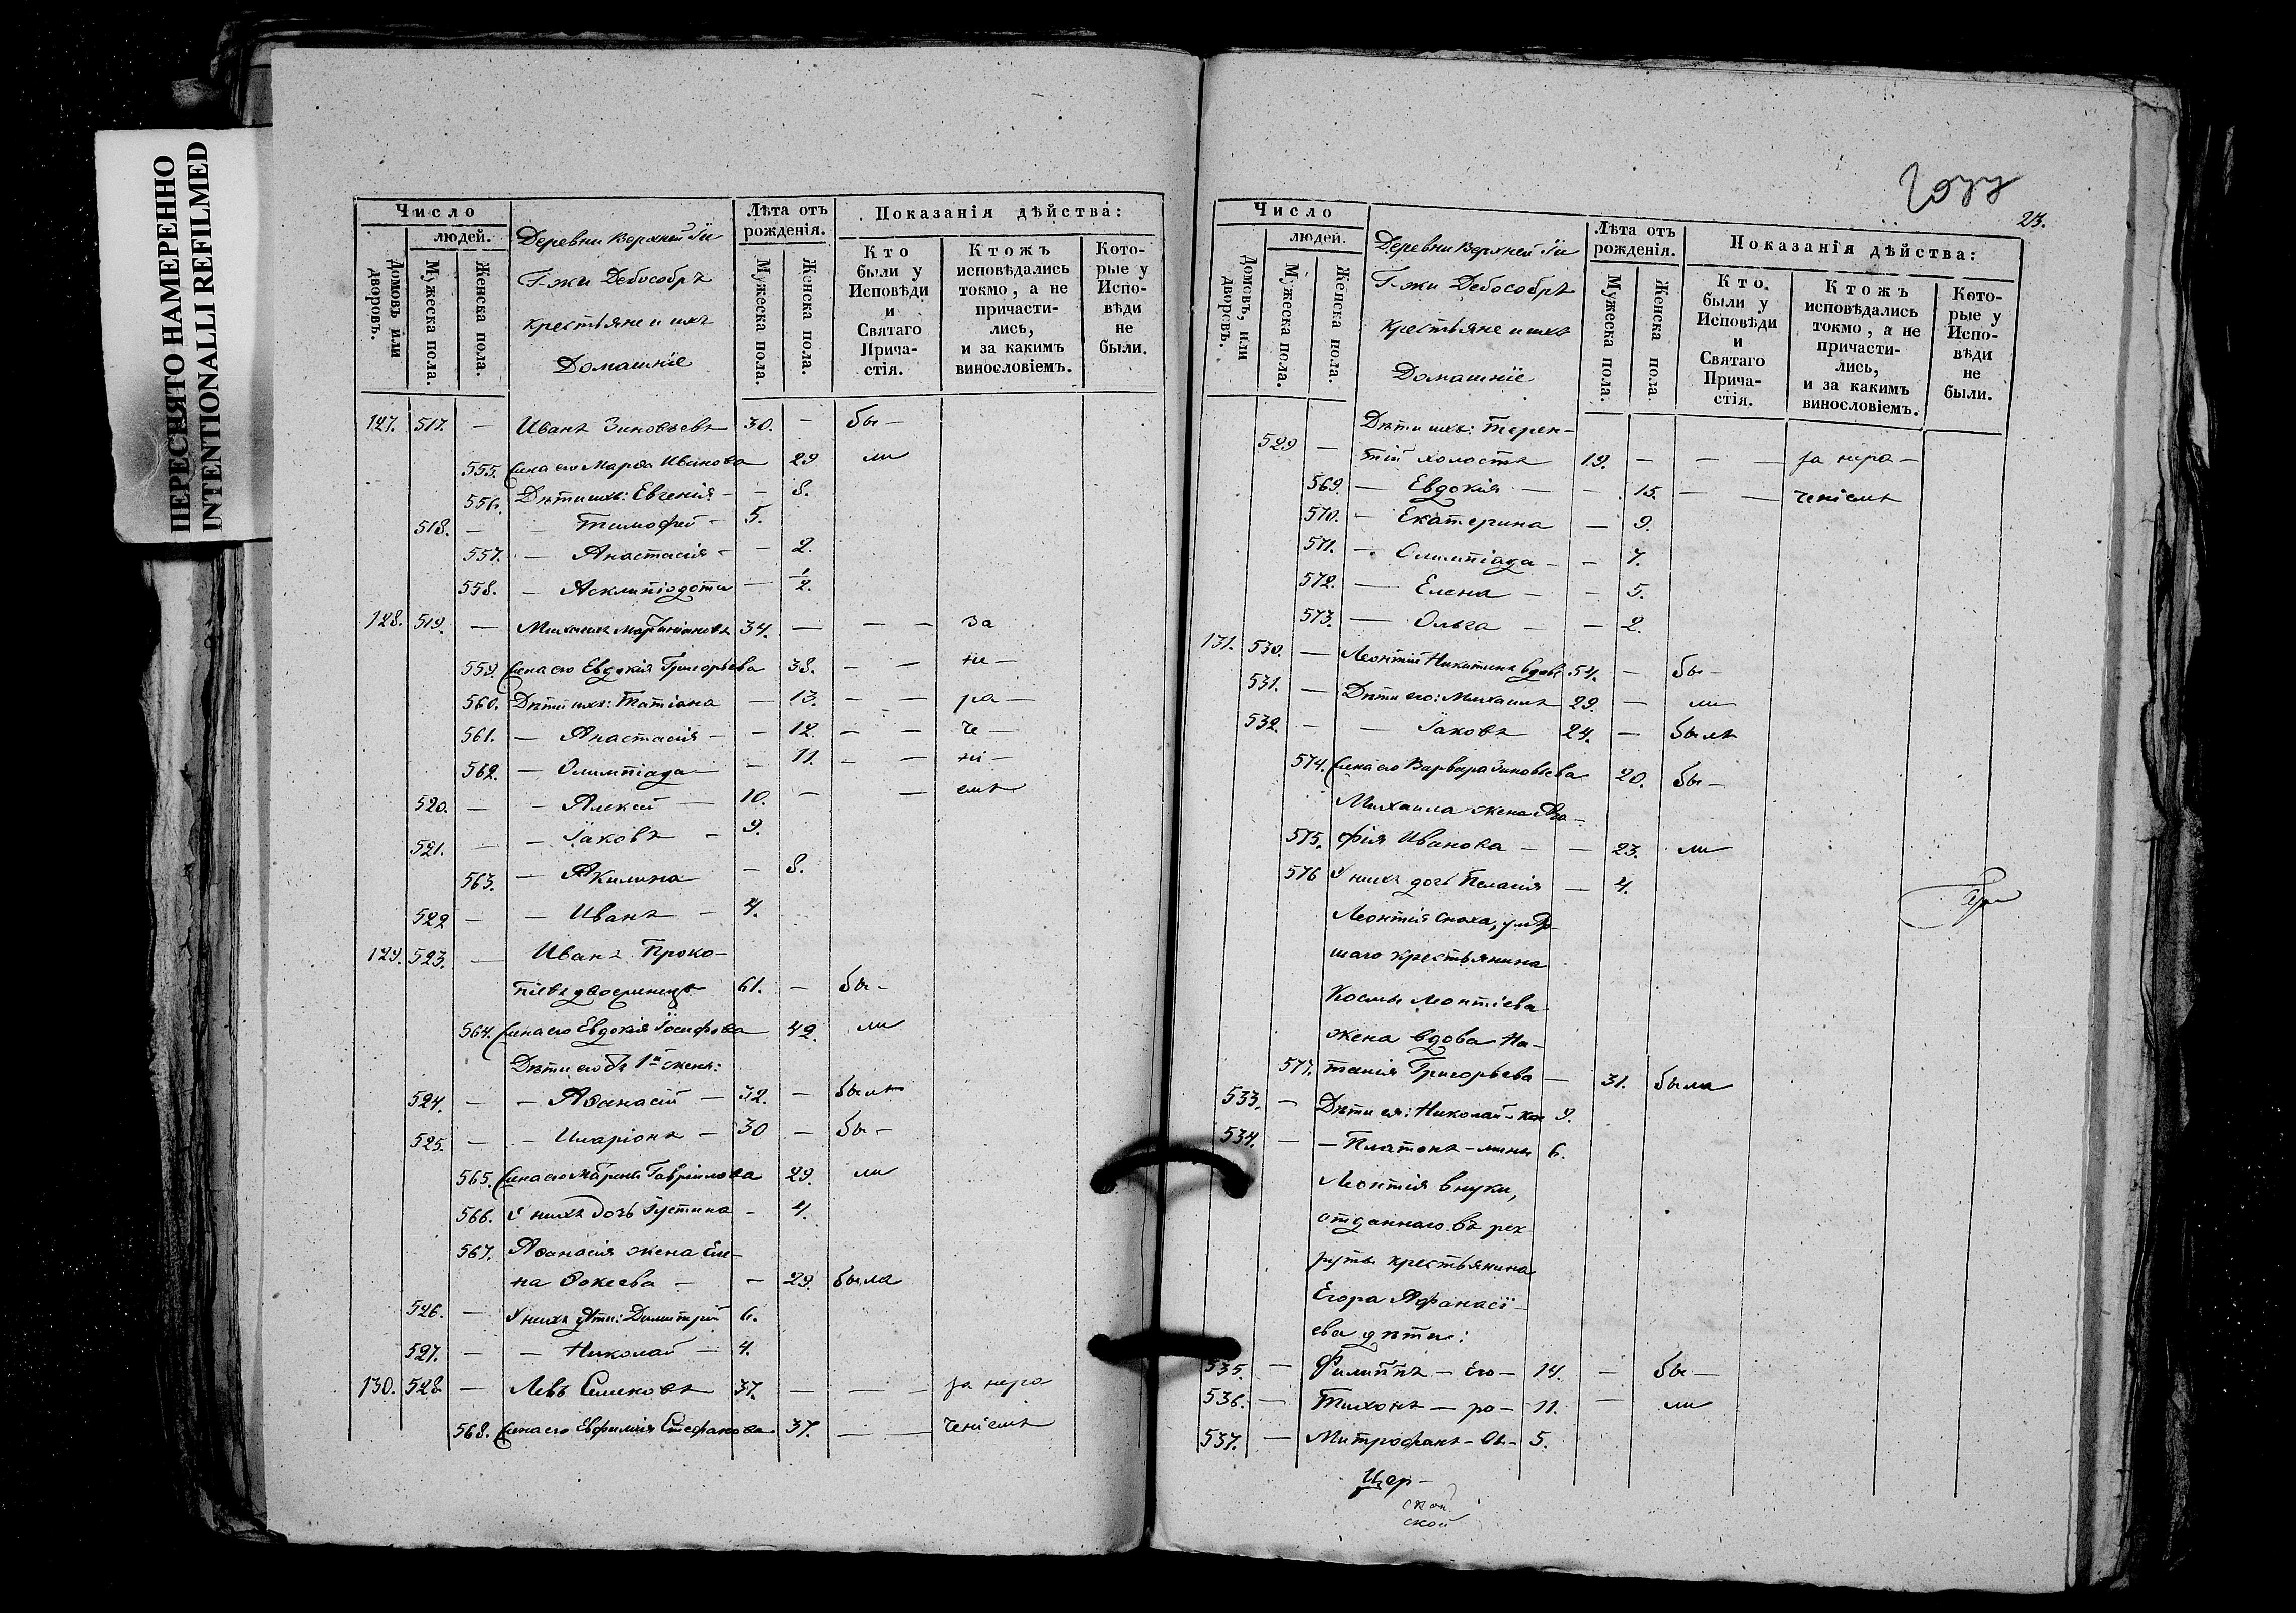 ПЕРЕСНЯТО НАМЕРЕННО
INTENTIONALLI REFILMED
Число
людей.
Домовъ или дворовъ.
Мужеска пола.
Женска пола.
Деревни Верхней
Г-жи Дебособръ
крестьяне и ихъ
Домашніе
Лѣта отъ рожденія.
Мужеска пола.
Женска пола.
Показанія дѣйства:
Кто были у Исповѣди и Святаго Прича-стія.
Ктожъ исповѣдались токмо, а не причасти-лись, и за какимъ винословіемъ.
Кото-рые у Испо-вѣди не были.
127. 517. — Иванъ Зиновьевъ 30. — бы—
555. Жена его Марѳа Иванова 29 ли
556. Дѣти ихъ: Евгенія — — 8.
518. — — Тимофей — 5.
557. — Анастасія — — 2.
558. — Асклипіодота — 1/2.
128. 519. — Михаилъ Мартиніановъ 34. — — — за
559. Жена его Евдокія Григорьева 38. — — не—
560. Дѣти ихъ: Татіана — 13. — — ра—
561. — Анастасія — — 12. — — че—
562. — Олимпіада — — 11. — — ні—
520. — — Алексій — 10. — — емъ
521. — — Іаковъ — 9.
563. — Акилина — 8.
522 — — Иванъ — 4.
129. 523. — Иванъ Проко-
піевъ двоеженецъ 61. — бы—
564. Жена его Евдокія Іосифова 42. ли
Дѣти его отъ 1й жены:
524. — — Аѳанасій — 32. — былъ
525. — — Иларіонъ — 30 — бы—
565. Жена его Марина Гавріилова 29. ли
566. У нихъ дочь Іустина — 4.
567. Аѳанасія жена Еле-
на Ѳокеева — — 29. была
526. — У нихъ дѣти: Димитрій 6.
527. — — Николай — 4.
130. 528 — Левъ Семеновъ 37. — — — за нера
568. Жена его Евфимія Стефанова 37. — — ченіемъ
Году
23.
Число
людей.
Домовъ, или дворовъ.
Мужеска пола.
Женска пола.
Деревни Верхней
Г-жи Дебособръ
крестьяне и ихъ
Домашніе
Лѣта отъ рожденія.
Мужеска пола.
Женска пола
Показанія дѣйства:
Кто были у Исповѣди и Святаго Прича-стія.
Ктожъ исповѣдались токмо, а не причасти-лись, и за какимъ винословіемъ.
Кото-рые у Испо-вѣди не были.
Дѣти ихъ: Терен-
529 — тій холостъ 19. — — — за нера—
569. — Евдокія — — 15. — — ченіемъ
570. — Екатерина — 9.
571. — Олимпіада — — 7.
572. — Елена — — 5.
573. — Ольга — — 2.
131. 530. — Леонтій Никитинъ вдовъ 54. — бы—
531. — Дѣти его: Михаилъ 29. — ли
532. — — Іаковъ 24. — былъ
574. Жена его Варвара Зиновьева 20. бы—
Михаила жена
575. фія Иванова — — 23. ли
576 У нихъ дочь Пелагія — 4.
Леонтія сноха, умер-
шаго крестьянина
Косьмы Леонтіева
жена вдова На-
577. талія Григорьева — 31. была
533. — Дѣти ея: Николай — Кос 9.
534. — — Платонъ — мины 6.
Леонтія внуки,
отданнаго въ рек-
руты крестьянина
Егора Афанасі-
ева дѣти:
535. — Филиппъ — Его— 14. — бы—
536. — Тихонъ — ро— 11. — ли
537. — Митрофанъ — вы— 5.
Цер—
ской
ской